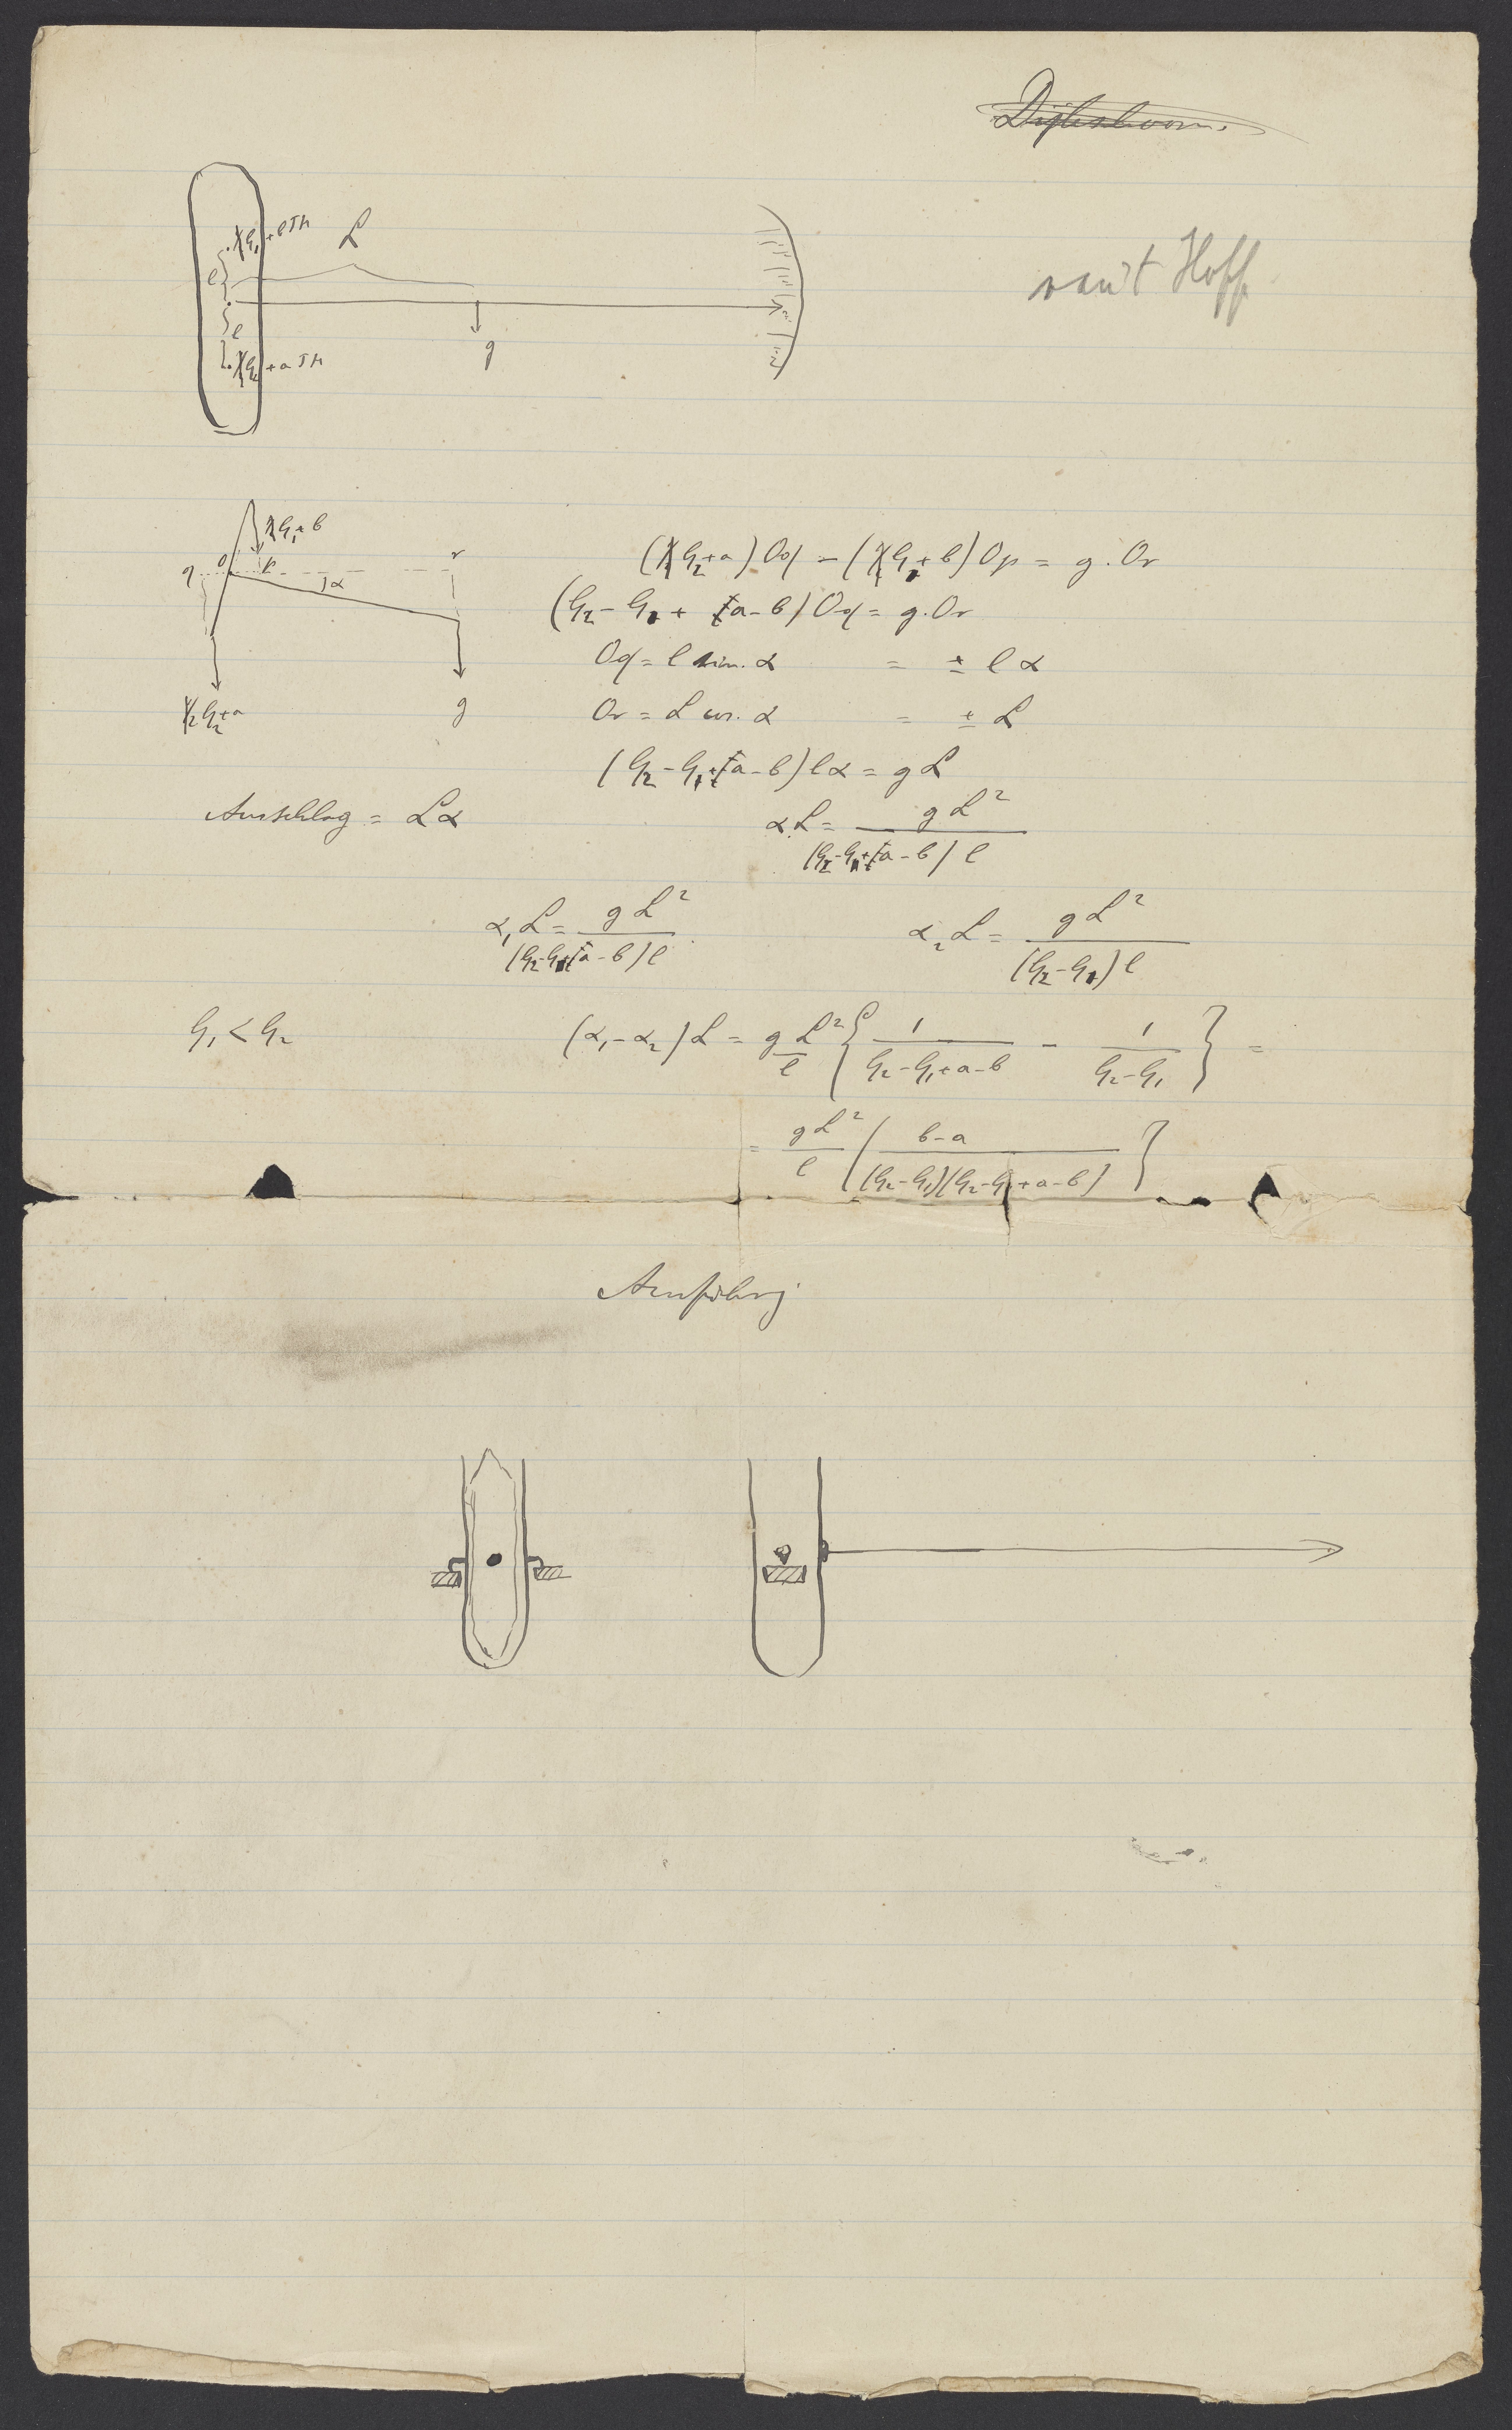 van't Hoff
½G₁+bTH
L
l
l
g
½G₂+aTH
½G₁+b
q O p r
α
½G₂+a
g
(½G₂+a)Oq - (½G₁+b)Op = g. Or
(G₂-G₁ + a-b)Oq = g. Or
Oq = l sin. α = ± l α
Or = L cos. α = ± L
(G₂-G₁+a-b)lα = gL
Ausschlag = Lα
αL = gL² / (G₂-G₁+a-b)l
α₁L = gL² / (G₂-G₁+a-b)l α₂L = gL² / (G₂-G₁)l
G₁ < G₂ (α₁-α₂)L = gL²/l { 1/(G₂-G₁+a-b) - 1/(G₂-G₁) } =
= gL²/l { (b-a) / (G₂-G₁)(G₂-G₁+a-b) }
Ausführg